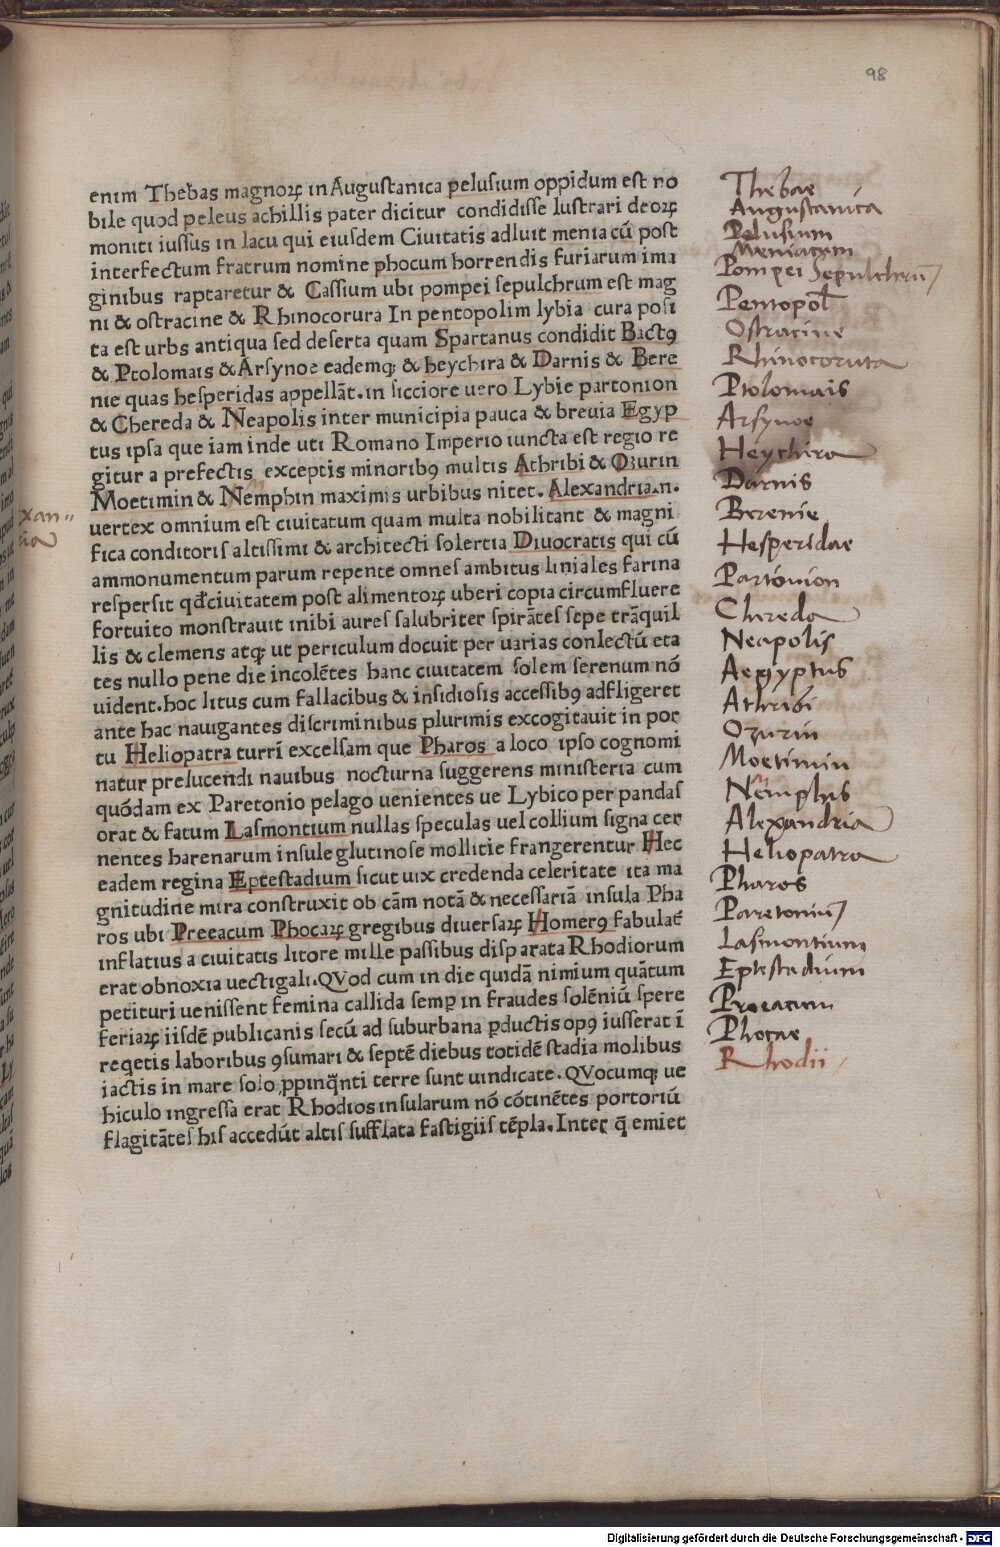 98
enim Thebas magnoꝝ in Augustanica pelusium oppidum est no
bile quod peleus achillis pater dicitur condidisse lustrari deoꝝ
moniti iussus in lacu qui eiusdem Ciuitatis adluit menia cū post
interfectum fratrum nomine phocum horrendis furiarum ima
ginibus raptaretur & Cassium ubi pompei sepulchrum est mag
ni & ostracine & Rhinocorura In pentopolim lybia cura posi
ta est urbs antiqua sed deserta quam Spartanus condidit Bactꝰ
& Ptolomais & Arsynoe eademqꝫ & heychira & Darnis & Bere
nie quas hesperidas appellāt. in sicciore uero Lybie partonion
& Chereda & Neapolis inter municipia pauca & breuia Egyp
tus ipsa que iam inde uti Romano Imperio iuncta est regio re
gitur a prefectis exceptis minoribꝰ multis Athribi & Ozurin
Moetimin & Nemphin maximis urbibus nitet. Alexandria.n.
uertex omnium est ciuitatum quam multa nobilitant & magni
fica conditoris altissimi & architecti solertia Diuocratis qui cū
ammonumentum parum repente omnes ambitus liniales farina
respersit qđ ciuitatem post alimentoꝝ uberi copia circumfluere
fortuito monstrauit inibi aures salubriter spirātes sepe trāquil
lis & clemens atqꝫ ut periculum docuit per uarias conlectū eta
tes nullo pene die incolētes hanc ciuitatem solem serenum nō
uident. hoc litus cum fallacibus & insidiosis accessibꝰ adfligeret
ante hac nauigantes discriminibus plurimis excogitauit in por
tu Heliopatra turrī excelsam que Pharos a loco ipso cognomi
natur prelucendi nauibus nocturna suggerens ministeria cum
quōdam ex Paretonio pelago uenientes ue Lybico per pandas
orat & fatum Lasmontium nullas speculas uel collium signa cer
nentes harenarum insule glutinose mollitie frangerentur Hec
eadem regina Eptestadium sicut uix credenda celeritate ita ma
gnitudine mira construxit ob cām notā & necessariā insula Pha
ros ubi Preeacum Phocaꝝ gregibus diuersaꝝ Homerꝰ fabulat᷑
inflatius a ciuitatis litore mille passibus disparata Rhodiorum
erat obnoxia uectigali. QVod cum in die quidā nimium quātum
petituri uenissent femina callida semꝑ in fraudes solēniū spere
feriaꝝ iisdē publicanis secū ad suburbana ꝑductis opꝰ iusserat ī
reqetis laboribus ꝯsumari & septē diebus totidē stadia molibus
iactis in mare solo ꝓpinq̄nti terre sunt uindicate. QVocumqꝫ ue
hiculo ingressa erat Rhodios insularum nō cōtinētes portoriū
flagitātes his accedūt altis sufflata fastigiis tēpla. Inter q̄ emiet
xan-
ria
Thebae
Augustanica
Pelusium
Meniacum
Pompei Sepulchrū
Pentopol
Ostracine
Rhinocorura
Ptolomais
Arsynoe
Heychira
Darnis
Berenie
Hesperidae
Partonion
Chereda
Neapolis
Aegyptus
Athribi
Ozurin
Moetimin
Nemphis
Alexandria
Heliopatra
Pharos
Paretoniū
Lasmontium
Eptestadium
Proeacum
Phocae
Rhodii
Digitalisierung gefördert durch die Deutsche Forschungsgemeinschaft - DFG